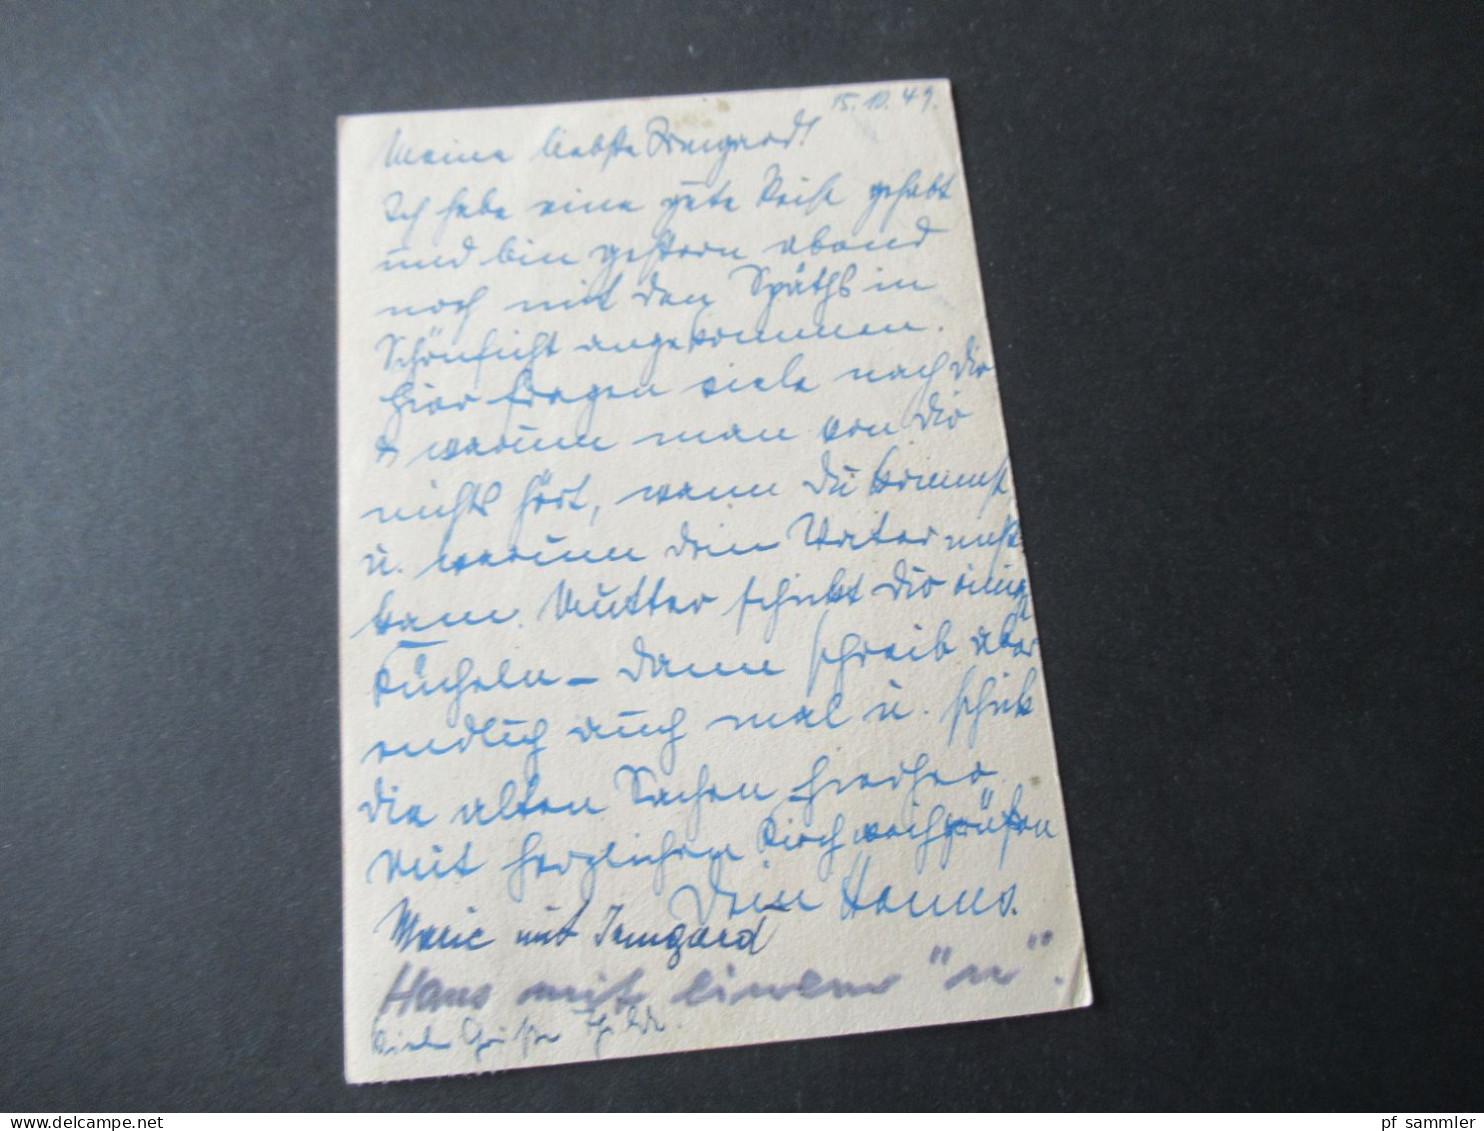 15.10.49.
Meine liebste Irmgard!
Ich habe eine gute Reise gehabt
und bin gestern abend
noch mit den Späths in
Schönficht angekommen.
Hier fragen viele nach Dir
& warum man von Dir
nichts hört, wann Du kommst
u. warum dein Vater nicht
kam. Mutter schickt Dir einige
Kücheln – dann schreib aber
endlich auch mal u. schick
die alten Sachen hierher.
Mit herzlichen Kirchweihgrüßen
Dein Hanns.
Marie mit Irmgard
Hans mit einem "n".
Viele Grüße
pf sammler